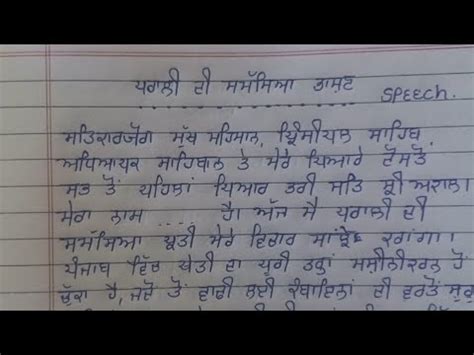 ਪਰਾਲੀ ਦੀ ਸਮੱਸਿਆ ਭਾਸ਼ਣ
SPEECH.
ਸਤਿਕਾਰਯੋਗ ਮੁੱਖ ਮਹਿਮਾਨ, ਪ੍ਰਿੰਸੀਪਲ ਸਾਹਿਬ,
ਅਧਿਆਪਕ ਸਾਹਿਬਾਨ ਤੇ ਮੇਰੇ ਪਿਆਰੇ ਦੋਸਤੋ
ਸਭ ਤੋਂ ਪਹਿਲਾਂ ਪਿਆਰ ਭਰੀ ਸਤਿ ਸ੍ਰੀ ਅਕਾਲ।
ਮੇਰਾ ਨਾਮ .... ਹੈ। ਅੱਜ ਮੈਂ ਪਰਾਲੀ ਦੀ
ਸਮੱਸਿਆ ਪ੍ਰਤੀ ਮੇਰੇ ਵਿਚਾਰ ਸਾਂਝੇ ਕਰਾਂਗਾ।
ਪੰਜਾਬ ਵਿੱਚ ਖੇਤੀ ਦਾ ਪੂਰੀ ਤਰ੍ਹਾਂ ਮਸ਼ੀਨੀਕਰਨ ਹੋ
ਚੁੱਕਾ ਹੈ, ਜਦੋਂ ਤੋਂ ਵਾਢੀ ਲਈ ਕੰਬਾਇਨਾਂ ਦੀ ਵਰਤੋਂ